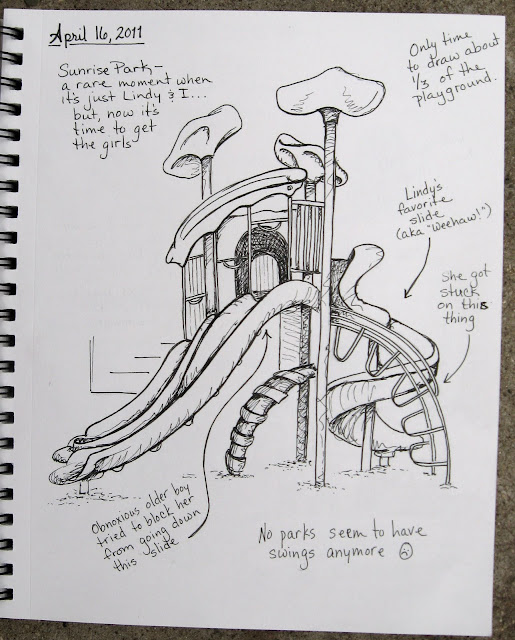 April 16, 2011
Sunrise Park –
a rare moment when
it's just Lindy & I...
but, now it's
time to get
the girls
Only time
to draw about
1/3 of the
playground.
Lindy's
favorite
slide
(aka "Weehaw!")
She got
stuck
on this
thing
Obnoxious older boy
tried to block her
from going down
this slide
No parks seem to have
swings anymore ☹